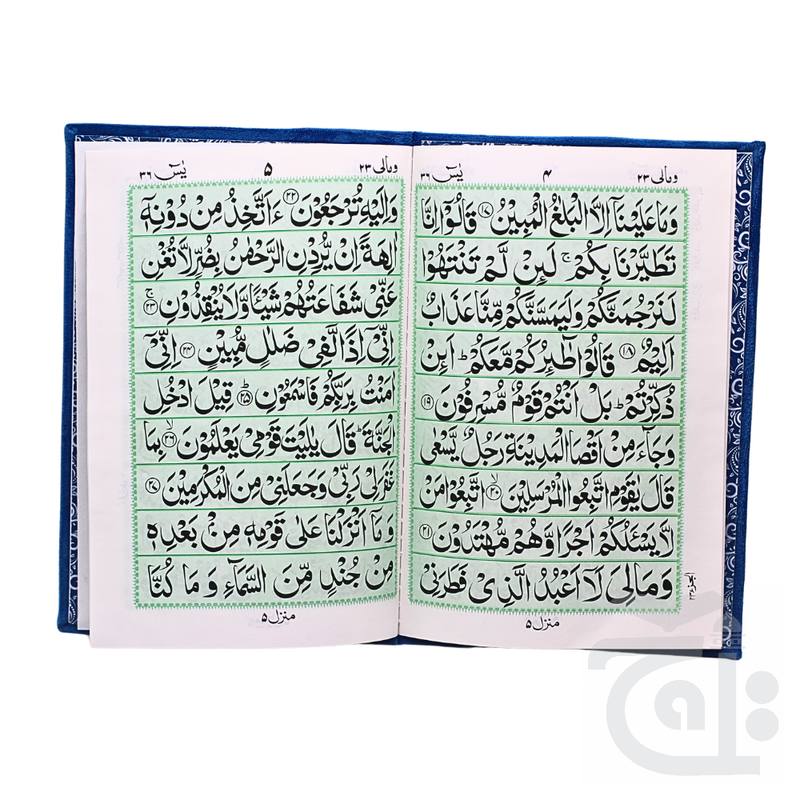 ومالی ٢٣
۴
یٰسٓ ٣٦
وَمَا عَلَیْنَاۤ اِلَّا الْبَلٰغُ الْمُبِیْنُ ﴿١٧﴾ قَالُوْۤا اِنَّا
تَطَیَّرْنَا بِكُمْ ۚ لَىِٕنْ لَّمْ تَنْتَهُوْا
لَنَرْجُمَنَّكُمْ وَلَیَمَسَّنَّكُمْ مِّنَّا عَذَابٌ
اَلِیْمٌ ﴿١٨﴾ قَالُوْا طَآىِٕرُكُمْ مَّعَكُمْ ؕ اَىِٕنْ
ذُكِّرْتُمْ ؕ بَلْ اَنْتُمْ قَوْمٌ مُّسْرِفُوْنَ ﴿١٩﴾
وَجَآءَ مِنْ اَقْصَا الْمَدِیْنَةِ رَجُلٌ یَّسْعٰى
قَالَ یٰقَوْمِ اتَّبِعُوا الْمُرْسَلِیْنَ ۙ﴿٢٠﴾ اتَّبِعُوْا مَنْ
لَّا یَسْـَٔلُكُمْ اَجْرًا وَّهُمْ مُّهْتَدُوْنَ ﴿٢١﴾
وَمَا لِیَ لَاۤ اَعْبُدُ الَّذِیْ فَطَرَنِیْ
الجزء ٢٣
منزل ۵
ومالی ٢٣
۵
یٰسٓ ٣٦
وَاِلَیْهِ تُرْجَعُوْنَ ﴿٢٢﴾ ءَاَتَّخِذُ مِنْ دُوْنِهٖۤ
اٰلِهَةً اِنْ یُّرِدْنِ الرَّحْمٰنُ بِضُرٍّ لَّا تُغْنِ
عَنِّیْ شَفَاعَتُهُمْ شَیْـًٔا وَّلَا یُنْقِذُوْنِ ۚ﴿٢٣﴾
اِنِّیْۤ اِذًا لَّفِیْ ضَلٰلٍ مُّبِیْنٍ ﴿٢٤﴾ اِنِّیْۤ
اٰمَنْتُ بِرَبِّكُمْ فَاسْمَعُوْنِ ؕ﴿٢٥﴾ قِیْلَ ادْخُلِ
الْجَنَّةَ ؕ قَالَ یٰلَیْتَ قَوْمِیْ یَعْلَمُوْنَ ۙ﴿٢٦﴾ بِمَا
غَفَرَ لِیْ رَبِّیْ وَجَعَلَنِیْ مِنَ الْمُكْرَمِیْنَ ﴿٢٧﴾
وَمَاۤ اَنْزَلْنَا عَلٰى قَوْمِهٖ مِنْۢ بَعْدِهٖ
مِنْ جُنْدٍ مِّنَ السَّمَآءِ وَمَا كُنَّا
منزل ۵